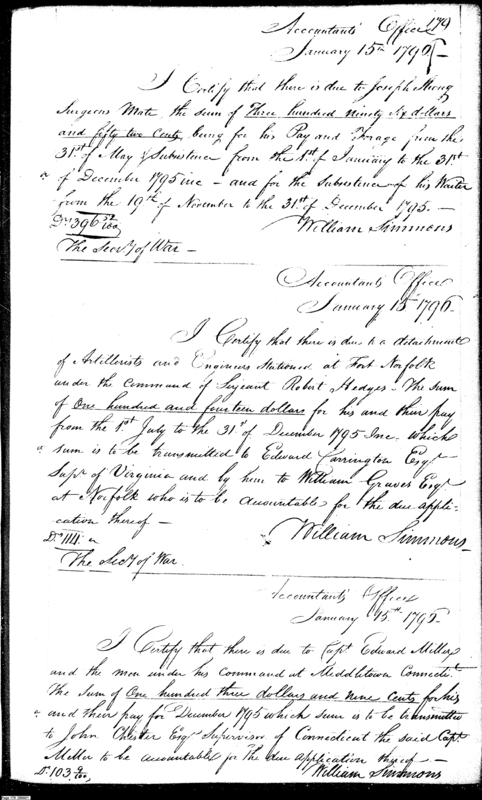 179
Accountants Office
January 15th 1796
I Certify that there is due to Joseph Strong
Surgeons Mate, the sum of Three hundred ninety six dollars
and fifty two Cents, being for his Pay and Forage from the
31st of May & Subsistence from the 1st of January to the 31st
of December 1795 inc - and for the Subsistence of his Waiter
from the 19th of November to the 31st of December 1795. -
Ds. 396 52/100
William Simmons
The Secry of War -
Accountants Office
January 15 1796
I Certify that there is due to a detachment
of Artillerists and Engineers stationed at Fort Norfolk
under the command of Serjeant Robert Hodges - The Sum
of One hundred and fourteen dollars for his and their pay
from the 1st July to the 31st of December 1795 Inc. which
sum is to be transmitted to Edward Carrington Esqr
Supr of Virginia and by him to William Graves Esqr
at Norfolk who is to be accountable for the due appli-
cation thereof -
Ds. 114.
William Simmons
The Secy of War.
Accountants Office
January 15th 1796
I Certify that there is due to Capt Edward Miller
and the men under his command at Middletown Connectt
The sum of One hundred three dollars and nine Cents for his
and their pay for December 1795 which sum is to be transmitted
to John Chester Esqr Supervisor of Connecticut the said Capt
Miller to be accountable for the due application thereof -
Ds. 103 9/100,
William Simmons